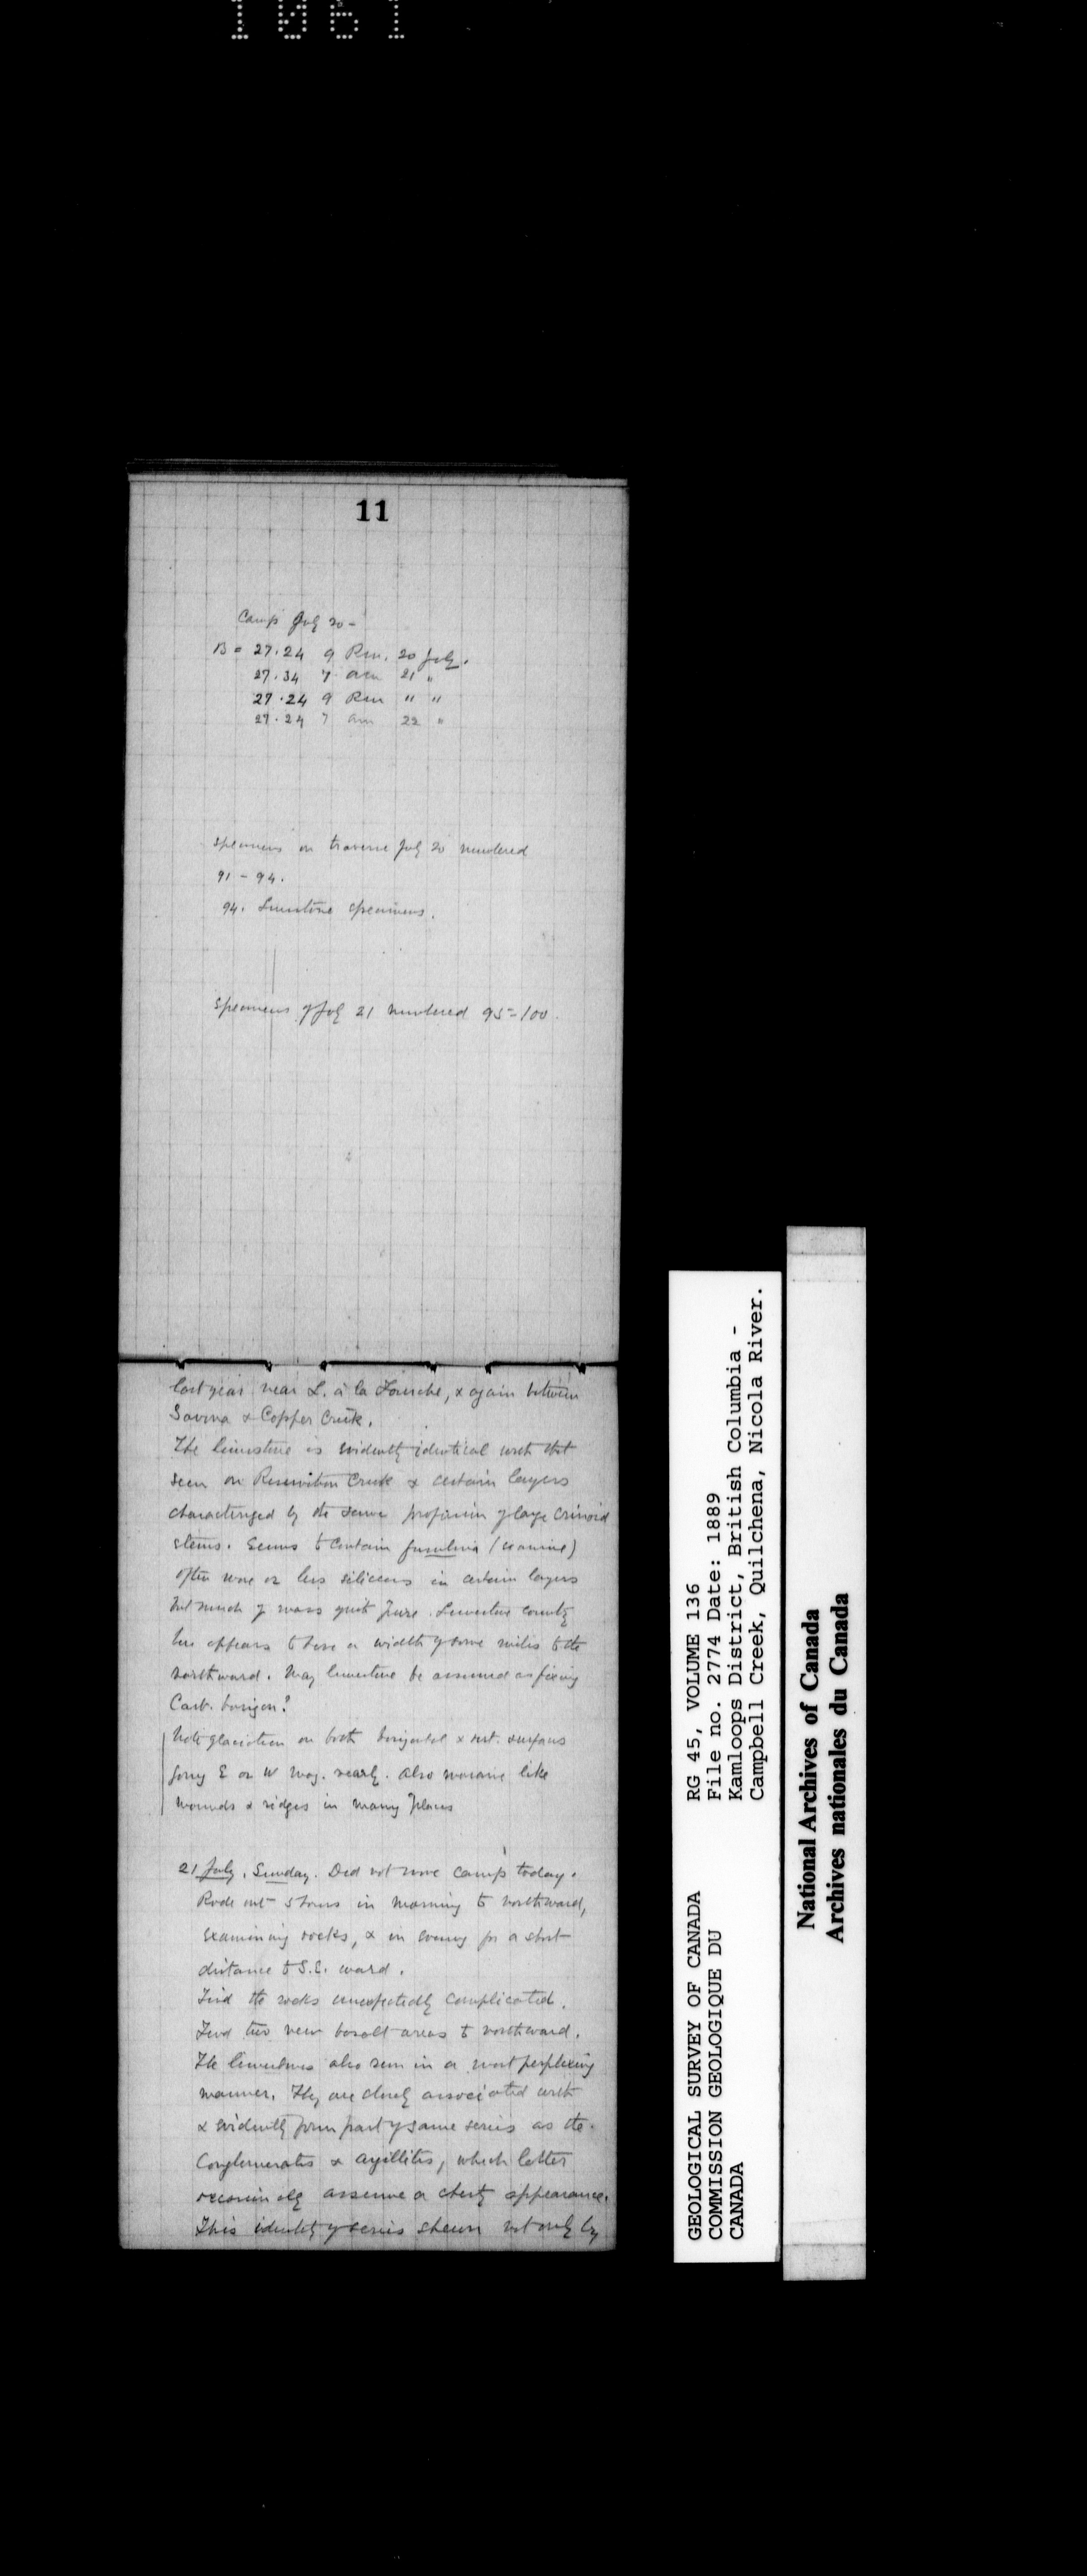 1061
11
Camp July 20 -
B = 27.24 9 P.m. 20 July.
27.34 7 am 21 "
27.24 9 P.m " "
27.24 7 am 22 "
Specimens on traverse July 20 numbered
91 - 94.
94. Limestone specimens.
Specimens of July 21 numbered 95 - 100.
last year near L. à la Fourche, & again between
Savona & Copper Creek.
The limestone is evidently identical with that
seen on Reservation Creek & certain layers
characterized by the same profusion of large crinoid
stems. Seems to contain fusulina (examine)
often more or less siliceous in certain layers
but much of mass quite pure. Limestone country
here appears to have a width of some miles to the
northward. May limestone be assumed as fixing
Carb. horizon?
Note glaciation on both horizontal & vert. surfaces
going E or W mag. nearly. Also moraine like
mounds & ridges in many places
21 July. Sunday. Did not move camp today.
Rode out 5 hours in morning to northward,
examining rocks, & in evening for a short
distance to S.E. ward.
Find the rocks unexpectedly complicated.
Find two new basalt areas to northward.
The limestones also run in a most perplexing
manner. They are closely associated with
& evidently form part of same series as the
Conglomerates & argillites, which latter
occasionally assume a cherty appearance.
This identity of series shewn not only by
GEOLOGICAL SURVEY OF CANADA
COMMISSION GEOLOGIQUE DU
CANADA
RG 45, VOLUME 136
File no. 2774 Date: 1889
Kamloops District, British Columbia -
Campbell Creek, Quilchena, Nicola River.
National Archives of Canada
Archives nationales du Canada